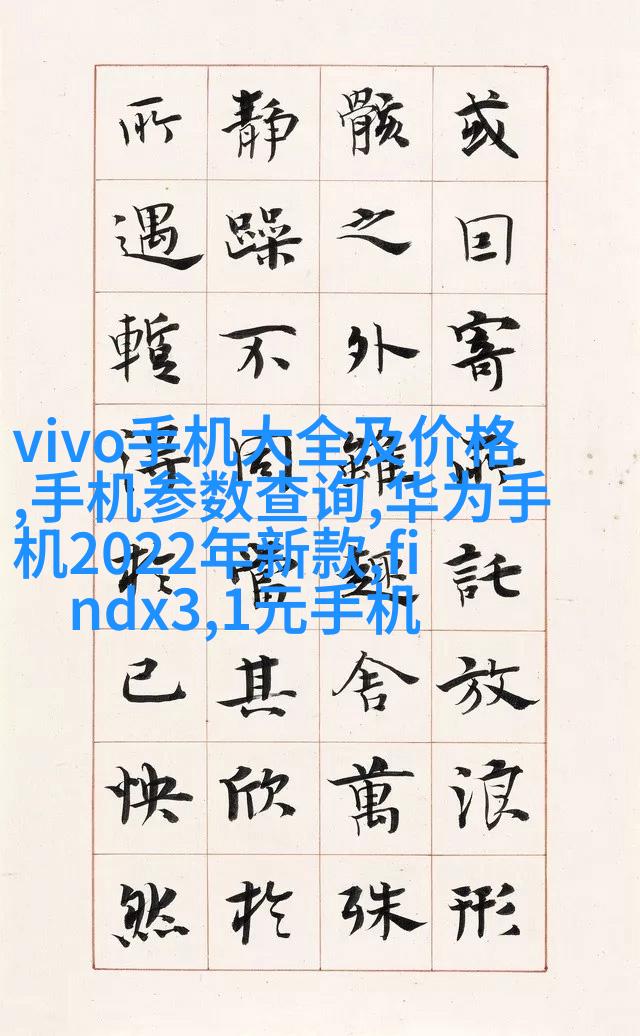 或囙寄所託放浪形
骸之外雖趣舍萬殊
静躁不同當其欣於
所遇暫得於己怏然
vivo手机大全及价格
,手机参数查询,华为手
机2022年新款,fi
ndx3,1元手机